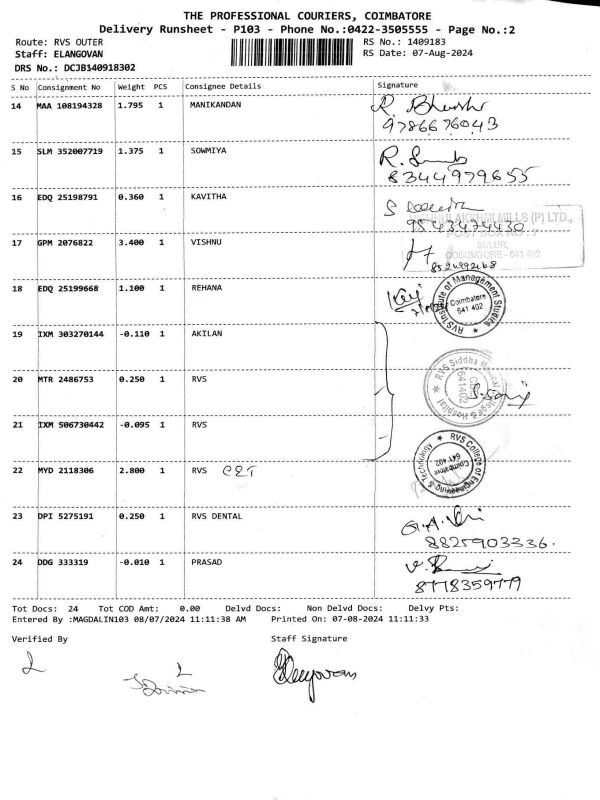 THE PROFESSIONAL COURIERS, COIMBATORE
Delivery Runsheet - P103 - Phone No.:0422-3505555 - Page No.:2
Route: RVS OUTER
RS No.: 1409183
Staff: ELANGOVAN
RS Date: 07-Aug-2024
DRS No.: DCJB140918302
S No Consignment No Weight PCS Consignee Details Signature
14 MAA 108194328 1.795 1 MANIKANDAN
9786676043
15 SLM 352007719 1.375 1 SOWMIYA
8344979655
16 EDQ 25198791 0.360 1 KAVITHA
9543474430
MILLS (P) LTD.,
17 GPM 2076822 3.400 1 VISHNU
SULUR,
COIMBATORE - 641 402
18 EDQ 25199668 1.100 1 REHANA
RVS Institute of Management Studies
Coimbatore
641 402
19 IXM 303270144 -0.110 1 AKILAN
20 MTR 2486753 0.250 1 RVS
RVS Siddha Medical College & Hospital
641402
21 IXM 506730442 -0.095 1 RVS
RVS College of Engineering & Technology
Coimbatore
641 402
22 MYD 2118306 2.800 1 RVS CET
23 DPI 5275191 0.250 1 RVS DENTAL
8825903336.
24 DDG 333319 -0.010 1 PRASAD
8778359779
Tot Docs: 24 Tot COD Amt: 0.00 Delvd Docs: Non Delvd Docs: Delvy Pts:
Entered By :MAGDALIN103 08/07/2024 11:11:38 AM Printed On: 07-08-2024 11:11:33
Verified By Staff Signature
Elangovan